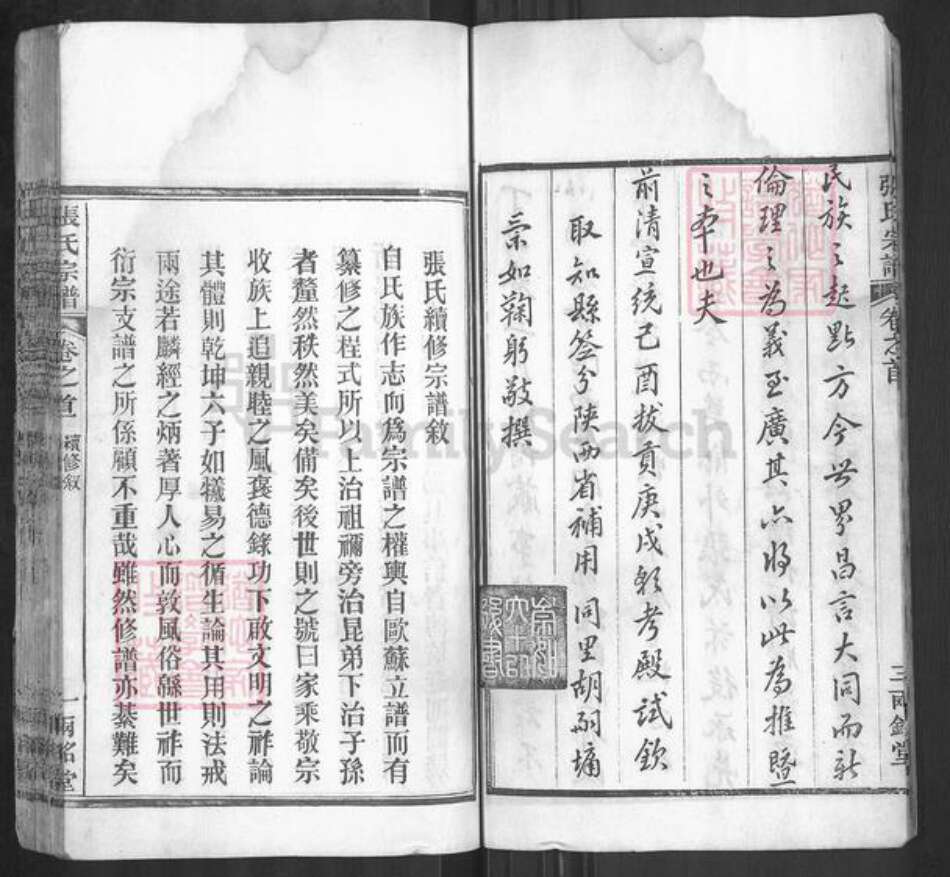 張氏宗譜 卷之首 三 兩銘堂
民族之起點方今世界昌言大同而新
倫理之為義至廣其亦將以此為推暨
之本也夫
前清宣統己酉拔貢庚戌朝考殿試欽
取知縣簽分陝西省補用 同里胡嗣墉
榮如鞠躬敬撰
FamilySearch
張氏續修宗譜敘
自氏族作志向為宗譜之權輿自歐蘇立譜而有
纂修之程式所以上治祖禰旁治昆弟下治子孫
者釐然秩然美矣備矣後世則之號曰家乘敬宗
收族上追親睦之風褒德錄功下啟文明之祚論
其體則乾坤六子如犧易之循生論其用則法戒
兩途若麟經之炳著厚人心而敦風俗緜世祚而
衍宗支譜之所係顧不重哉雖然修譜亦綦難矣
張氏宗譜 卷之首 續修敘 一 兩銘堂